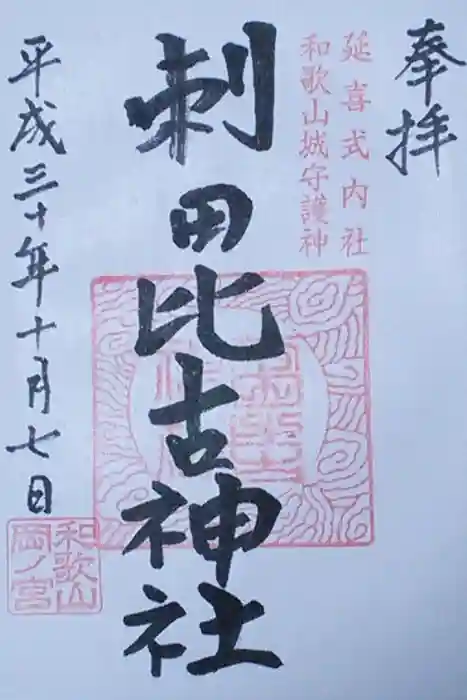 奉拝
延喜式内社
和歌山城守護神
刺田比古神社
平成三十年十月七日
和歌山
岡ノ宮